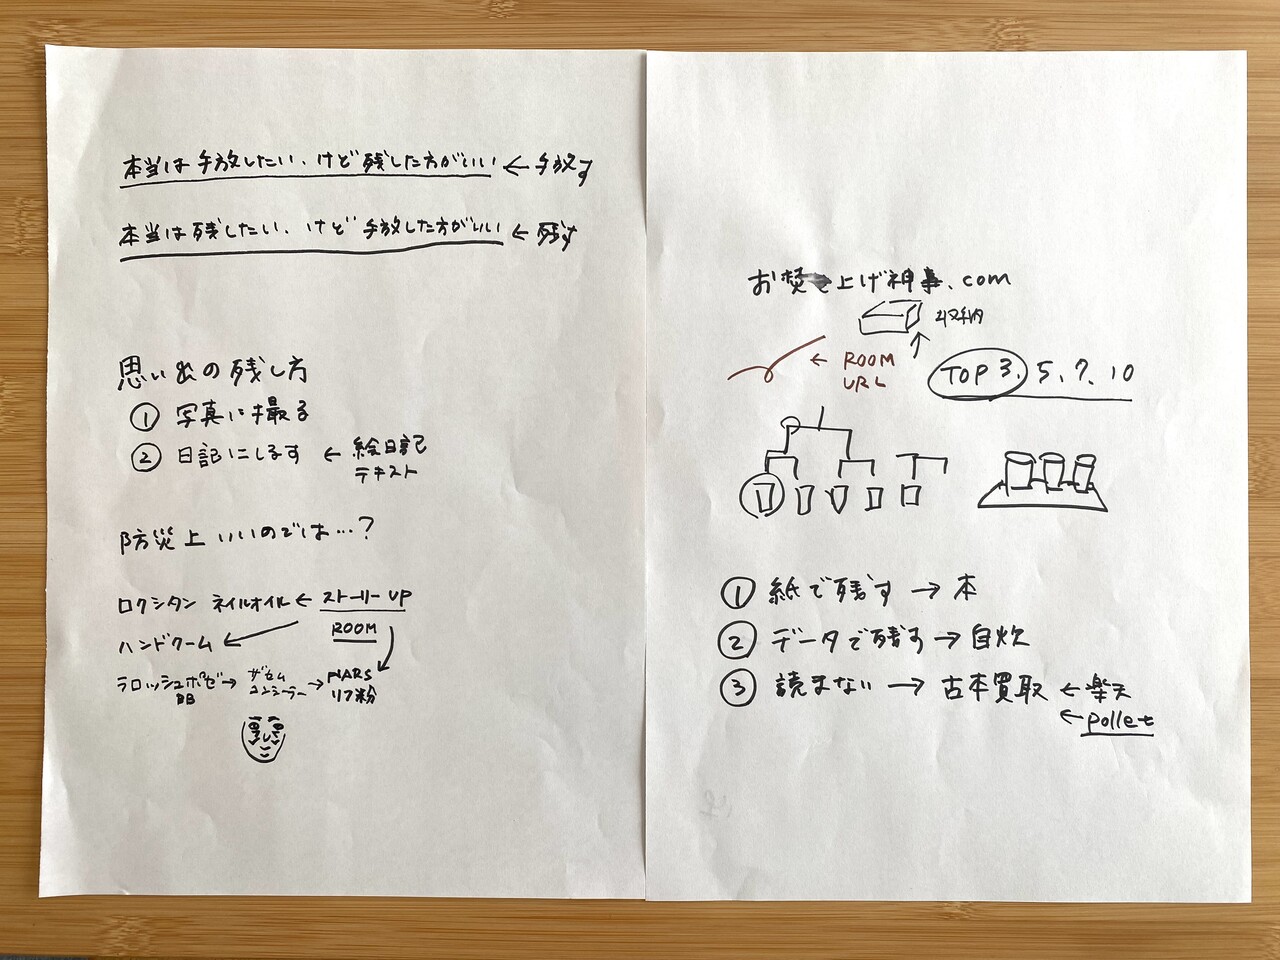 本当は手放したい、けど残した方がいい ← 手放す
本当は残したい、けど手放した方がいい ← 残す
思い出の残し方
① 写真に撮る
② 日記にしるす ← 絵日記
テキスト
防災上いいのでは…?
ロクシタン ネイルオイル ← ストーリーUP
ROOM
ハンドクーム ←
ラロッシュポゼ → ザセム → NARS
BB コンシーラー リフ粉
お焚き上げ神事.com
収納
← ROOM
URL
TOP 3. 5. 7. 10
① 紙で残す → 本
② データで残す → 自炊
③ 読まない → 古本買取 ← 楽天
← pollet